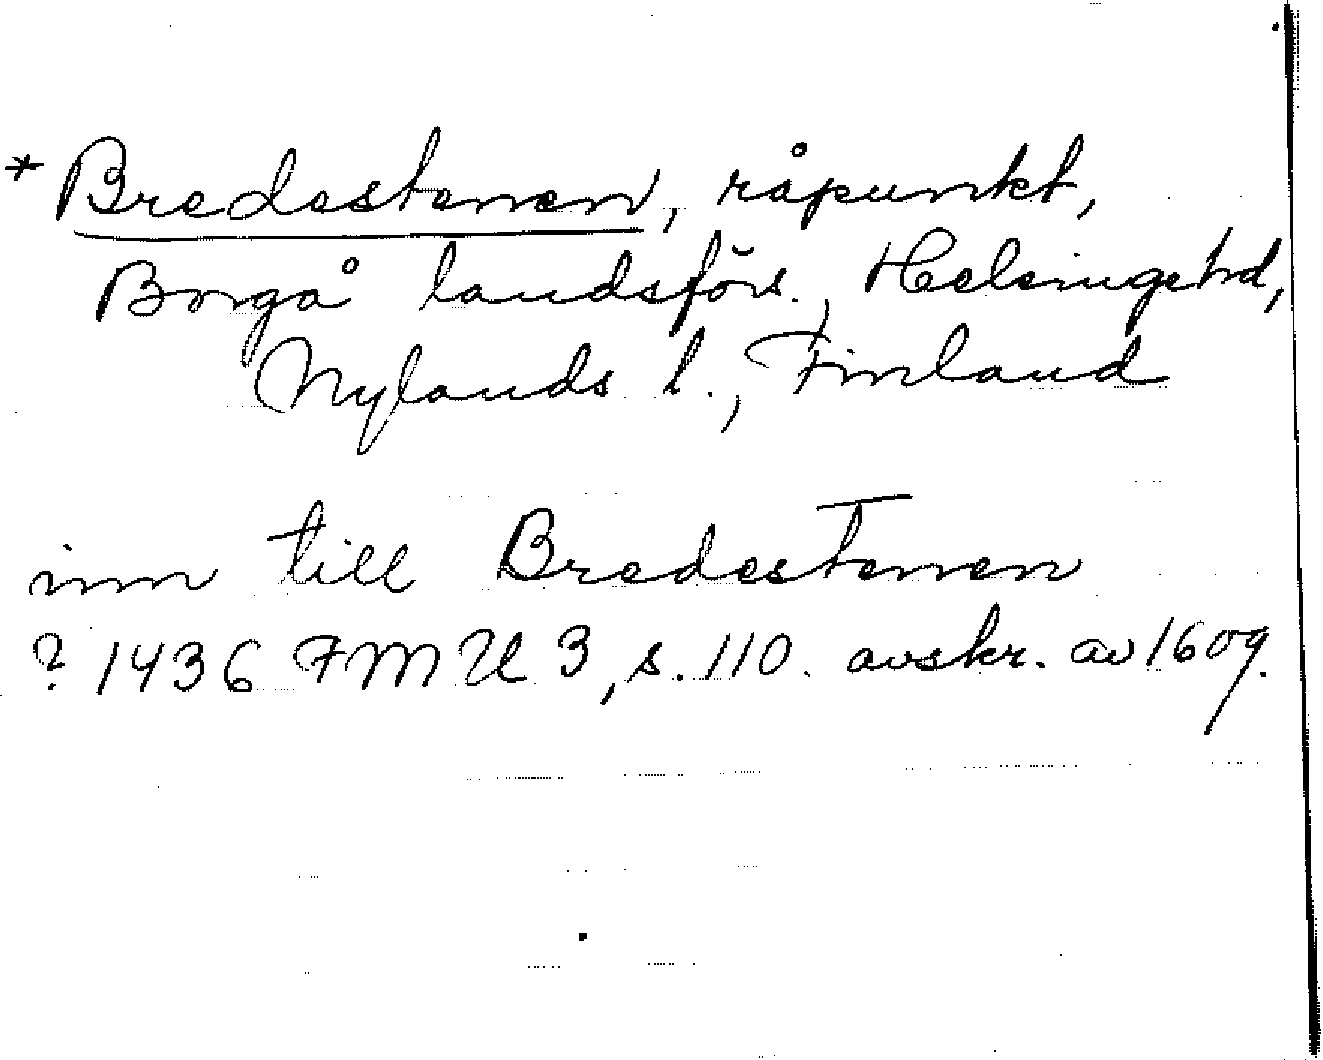 * Bredestenen, råpunkt,
Borgå landsförs., Helsinge hd,
Nylands l., Finland
inn till Bredestenen
? 1436 FMU 3, s. 110. avskr. av 1609.